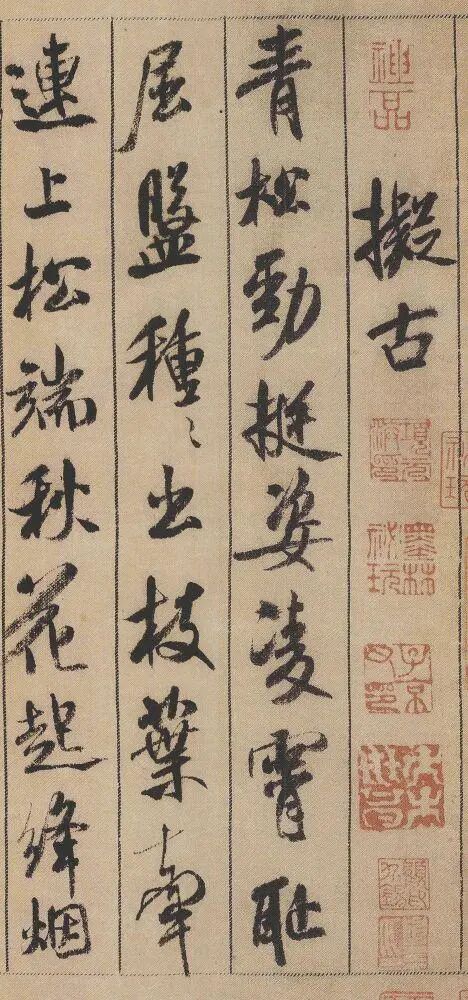 擬古
青松勁挺姿凌霄恥
屈盤種〻出枝葉牽
連上松端秋花起絳烟
神品